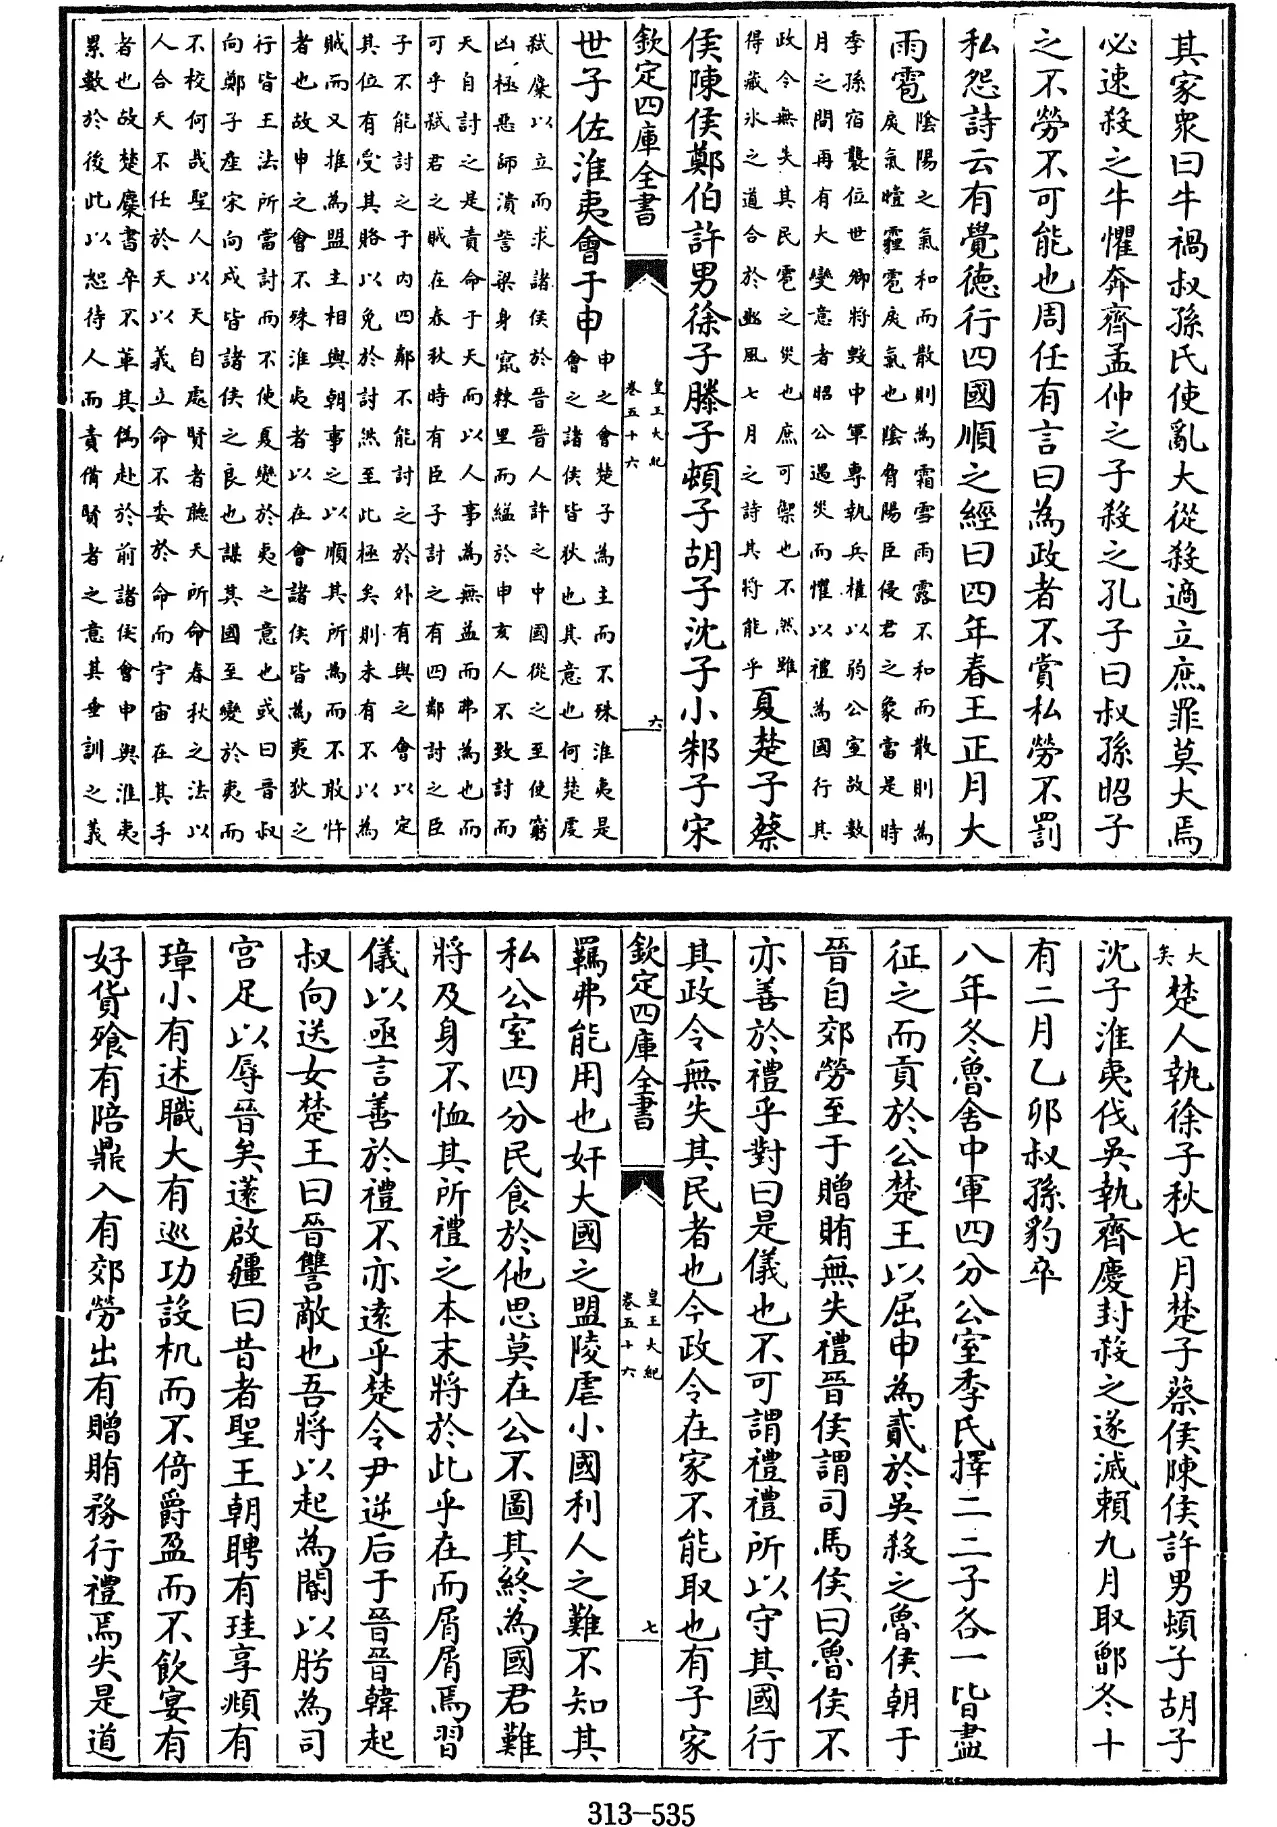 其家衆曰牛禍叔孫氏使亂大從殺適立庶罪莫大焉
必速殺之牛懼奔齊孟仲之子殺之孔子曰叔孫昭子
之不勞不可能也周任有言曰為政者不賞私勞不罰
私怨詩云有覺德行四國順之經曰四年春王正月大
雨雹陰陽之氣和而散則為霜雪雨露不和而散則為
戾氣曀霾雹戾氣也陰脅陽臣侵君之象當是時
季孫宿襲位世卿將毀中軍專執兵權以弱公室故數
月之間再有大變意者昭公遇災而懼以禮為國行其
政令無失其民雹之災也庶可禦也不然雖
得藏氷之道合於豳風七月之詩其將能乎夏楚子蔡
侯陳侯鄭伯許男徐子滕子頓子胡子沈子小邾子宋
欽定四庫全書
皇王大紀
卷五十六
六
世子佐淮夷會于申申之會楚子為主而不殊淮夷是
會之諸侯皆狄也其意也何楚虔
弑麋以立而求諸侯於晉晉人許之中國從之至使窮
凶極惡師潰訾梁身竄棘里而縊於申亥人不致討而
天自討之是責命于天而以人事為無益而弗為也而
可乎弑君之賊在春秋時有臣子討之有四鄰討之臣
子不能討之于内四鄰不能討之於外有與之會以定
其位有受其賂以免於討然至此極矣則未有不以為
賊而又推為盟主相與朝事之以順其所為而不敢忤
者也故申之會不殊淮夷者以在會諸侯皆為夷狄之
行皆王法所當討而不使夏變於夷之意也或曰晉叔
向鄭子產宋向戌皆諸侯之良也謀其國至變於夷而
不校何哉聖人以天自處賢者聽天所命春秋之法以
人合天不任於天以義立命不委於命而宇宙在其手
者也故楚麋書卒不革其偽赴於前諸侯會申與淮夷
累數於後此以恕待人而責備賢者之意其垂訓之義
大矣楚人執徐子秋七月楚子蔡侯陳侯許男頓子胡子
沈子淮夷伐吳執齊慶封殺之遂滅賴九月取鄫冬十
有二月乙卯叔孫豹卒
八年冬魯舍中軍四分公室季氏擇二二子各一皆盡
征之而貢於公楚王以屈申為貳於吳殺之魯侯朝于
晉自郊勞至于贈賄無失禮晉侯謂司馬侯曰魯侯不
亦善於禮乎對曰是儀也不可謂禮禮所以守其國行
其政令無失其民者也今政令在家不能取也有子家
欽定四庫全書
皇王大紀
卷五十六
七
羈弗能用也奸大國之盟陵虐小國利人之難不知其
私公室四分民食於他思莫在公不圖其終為國君難
將及身不恤其所禮之本末將於此乎在而屑屑焉習
儀以亟言善於禮不亦遠乎楚令尹逆后于晉晉韓起
叔向送女楚王曰晉讐敵也吾將以起為閽以肹為司
宫足以辱晉矣薳啟疆曰昔者聖王朝聘有珪享頫有
璋小有述職大有巡功設机而不倚爵盈而不飲宴有
好貨飱有陪鼎入有郊勞出有贈賄務行禮焉失是道
313-535